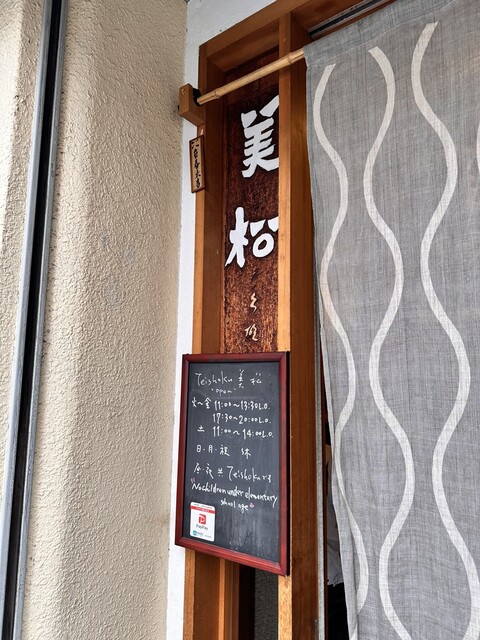 美
松
Teishoku 美松
"open"
火〜金 11:00〜13:30L.O.
17:30〜20:00L.O.
土 11:00〜14:00L.O.
日・月・祝 休
"No children under elementary
shool age"
PayPay